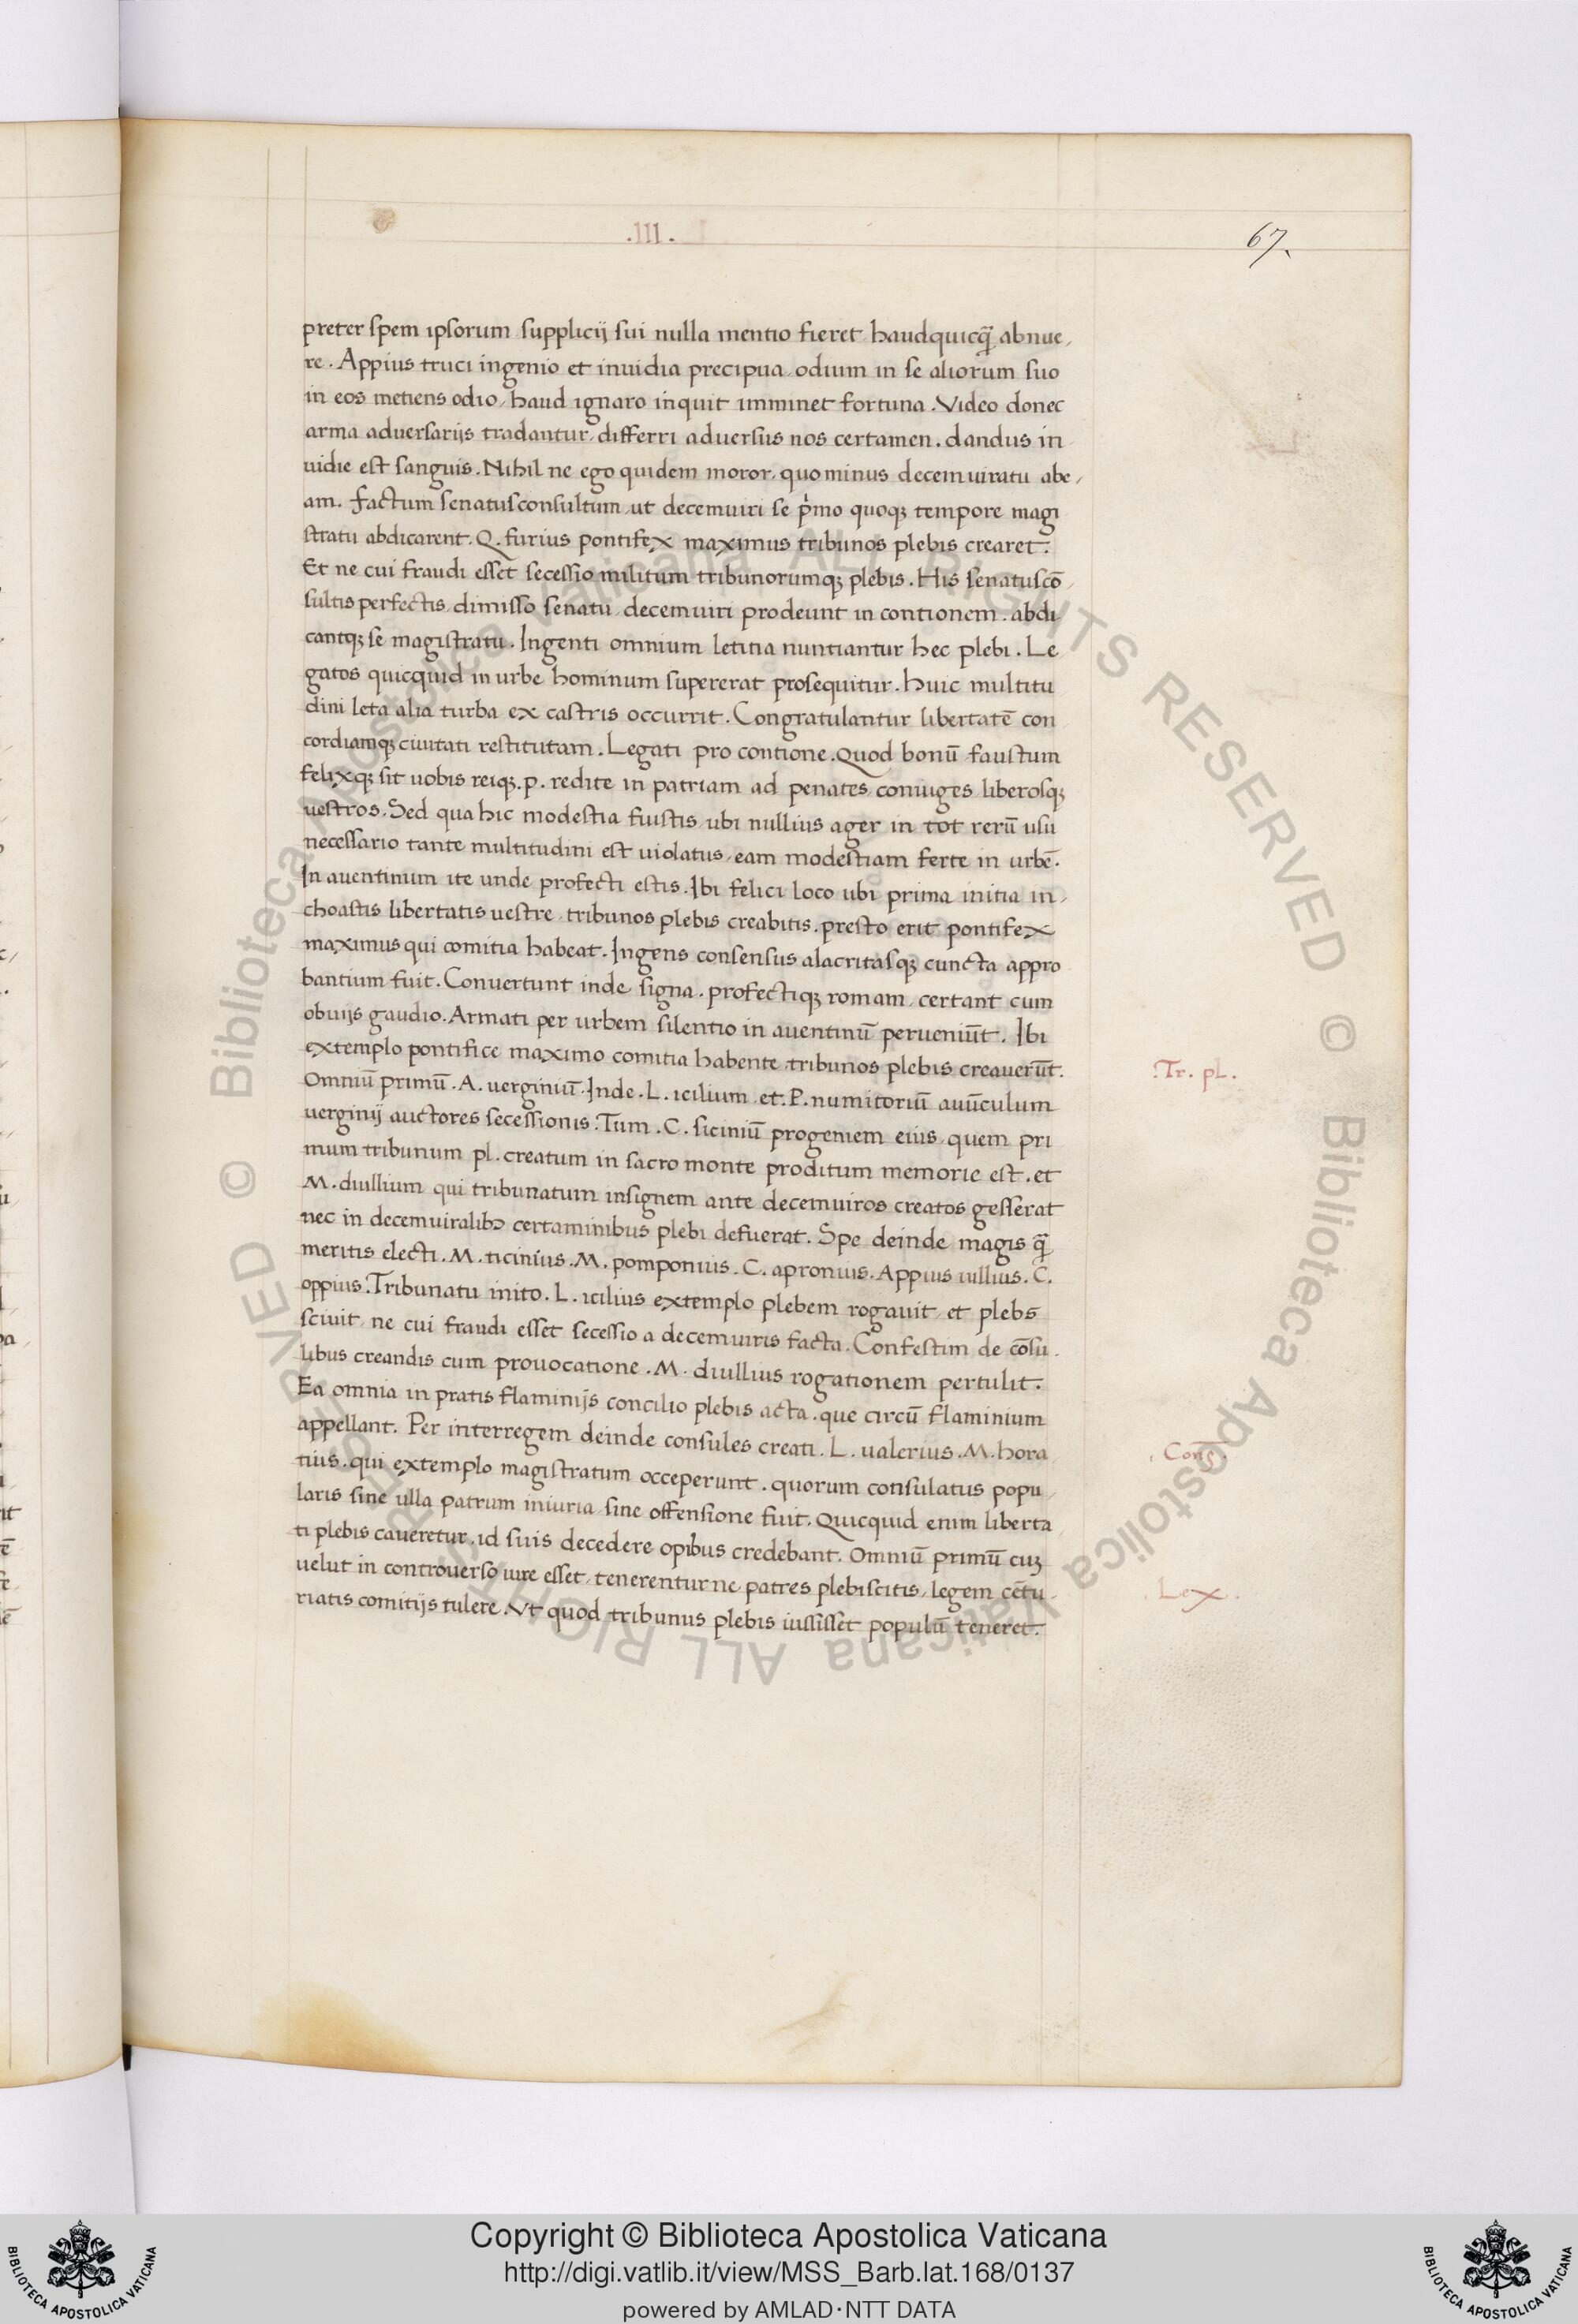 .III.
67.
preter spem ipsorum supplicij sui nulla mentio fieret haudquicq̄ abnue,
re. Appius truci ingenio et inuidia precipua, odium in se aliorum suo
in eos metiens odio, haud ignaro inquit imminet fortuna. Video donec
arma aduersarijs tradantur, differri aduersus nos certamen. dandus in
uidie est sanguis. Nihil ne ego quidem moror, quo minus decemuiratu abe,
am. factum senatusconsultum, ut decemuiri se p̍mo quoqꝫ tempore magi
stratu abdicarent. Q. furius pontifex maximus tribunos plebis crearet.
Et ne cui fraudi esset secessio militum tribunorumqꝫ plebis. His senatuscō,
sultis perfectis, dimisso senatu, decemuiri prodeunt in contionem. abdi
cantqꝫ se magistratu. Ingenti omnium letitia nuntiantur hec plebi. Le
gatos quicquid in urbe hominum supererat prosequitur. huic multitu
dini leta alia turba ex castris occurrit. Congratulantur libertatē con
cordiamqꝫ ciuitati restitutam. Legati pro contione. Quod bonū faustum
felixqꝫ sit uobis reiqꝫ. p. redite in patriam ad penates, coniuges, liberosqꝫ
uestros. Sed qua hic modestia fuistis, ubi nullius ager in tot rerū usu
necessario tante multitudini est uiolatus, eam modestiam ferte in urbē.
In auentinum ite unde profecti estis. Ibi felici loco ubi prima initia in,
choastis libertatis uestre, tribunos plebis creabitis. presto erit pontifex
maximus qui comitia habeat. Ingens consensus alacritasqꝫ cuncta appro
bantium fuit. Conuertunt inde signa. profectiqꝫ romam, certant cum
obuijs gaudio. Armati per urbem silentio in auentinū perueniūt. Ibi
extemplo pontifice maximo comitia habente, tribunos plebis creauerūt.
.Tr. pl.
Omniū primū. A. uerginiū. Inde. L. icilium. et. P. numitoriū auūculum
uerginij auctores secessionis. Tum. C. siciniū progeniem eius, quem pri
mum tribunum pl. creatum in sacro monte proditum memorie est. et
M. diullium qui tribunatum insignem ante decemuiros creatos gesserat
nec in decemuiralibꝫ certaminibus plebi defuerat. Spe deinde magis q̄
meritis electi. M. ticinius. M. pomponius. C. apronius. Appius uillius. C.
oppius. Tribunatu inito. L. icilius extemplo plebem rogauit, et plebs
sciuit, ne cui fraudi esset secessio a decemuiris facta. Confestim de cōsu.
libus creandis cum prouocatione. M. diullius rogationem pertulit.
Ea omnia in pratis flaminijs concilio plebis acta. que circū flaminium
appellant. Per interregem deinde consules creati. L. ualerius. M. hora
.Cons̄.
tius. qui extemplo magistratum occeperunt. quorum consulatus popu,
laris sine ulla patrum iniuria, sine offensione fuit. Quicquid enim liberta,
ti plebis caueretur, id suis decedere opibus credebant. Omniū primū cuꝫ
uelut in controuerso iure esset, tenerenturne patres plebiscitis, legem cētu.
.Lex.
riatis comitijs tulere. Vt quod tribunus plebis iussisset populū teneret.
© Biblioteca Apostolica Vaticana ALL RIGHTS RESERVED © Biblioteca Apostolica Vaticana ALL RIGHTS RESERVED
Copyright © Biblioteca Apostolica Vaticana
http://digi.vatlib.it/view/MSS_Barb.lat.168/0137
powered by AMLAD·NTT DATA
BIBLIOTECA APOSTOLICA VATICANA
BIBLIOTECA APOSTOLICA VATICANA